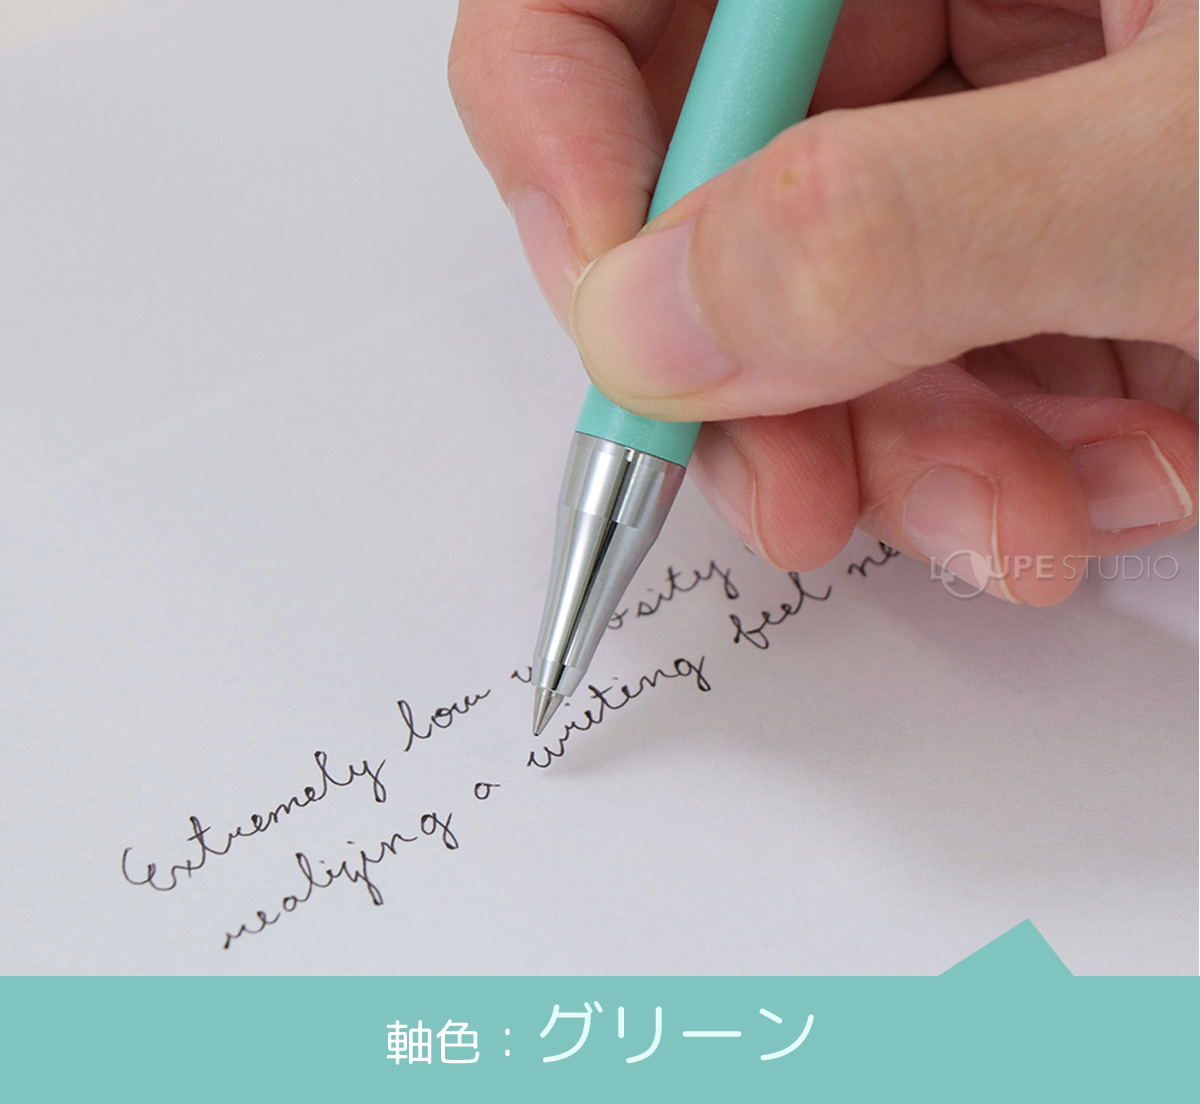 Extremely low viscosity
realizing a writing feel
LOUPE STUDIO
軸色：グリーン